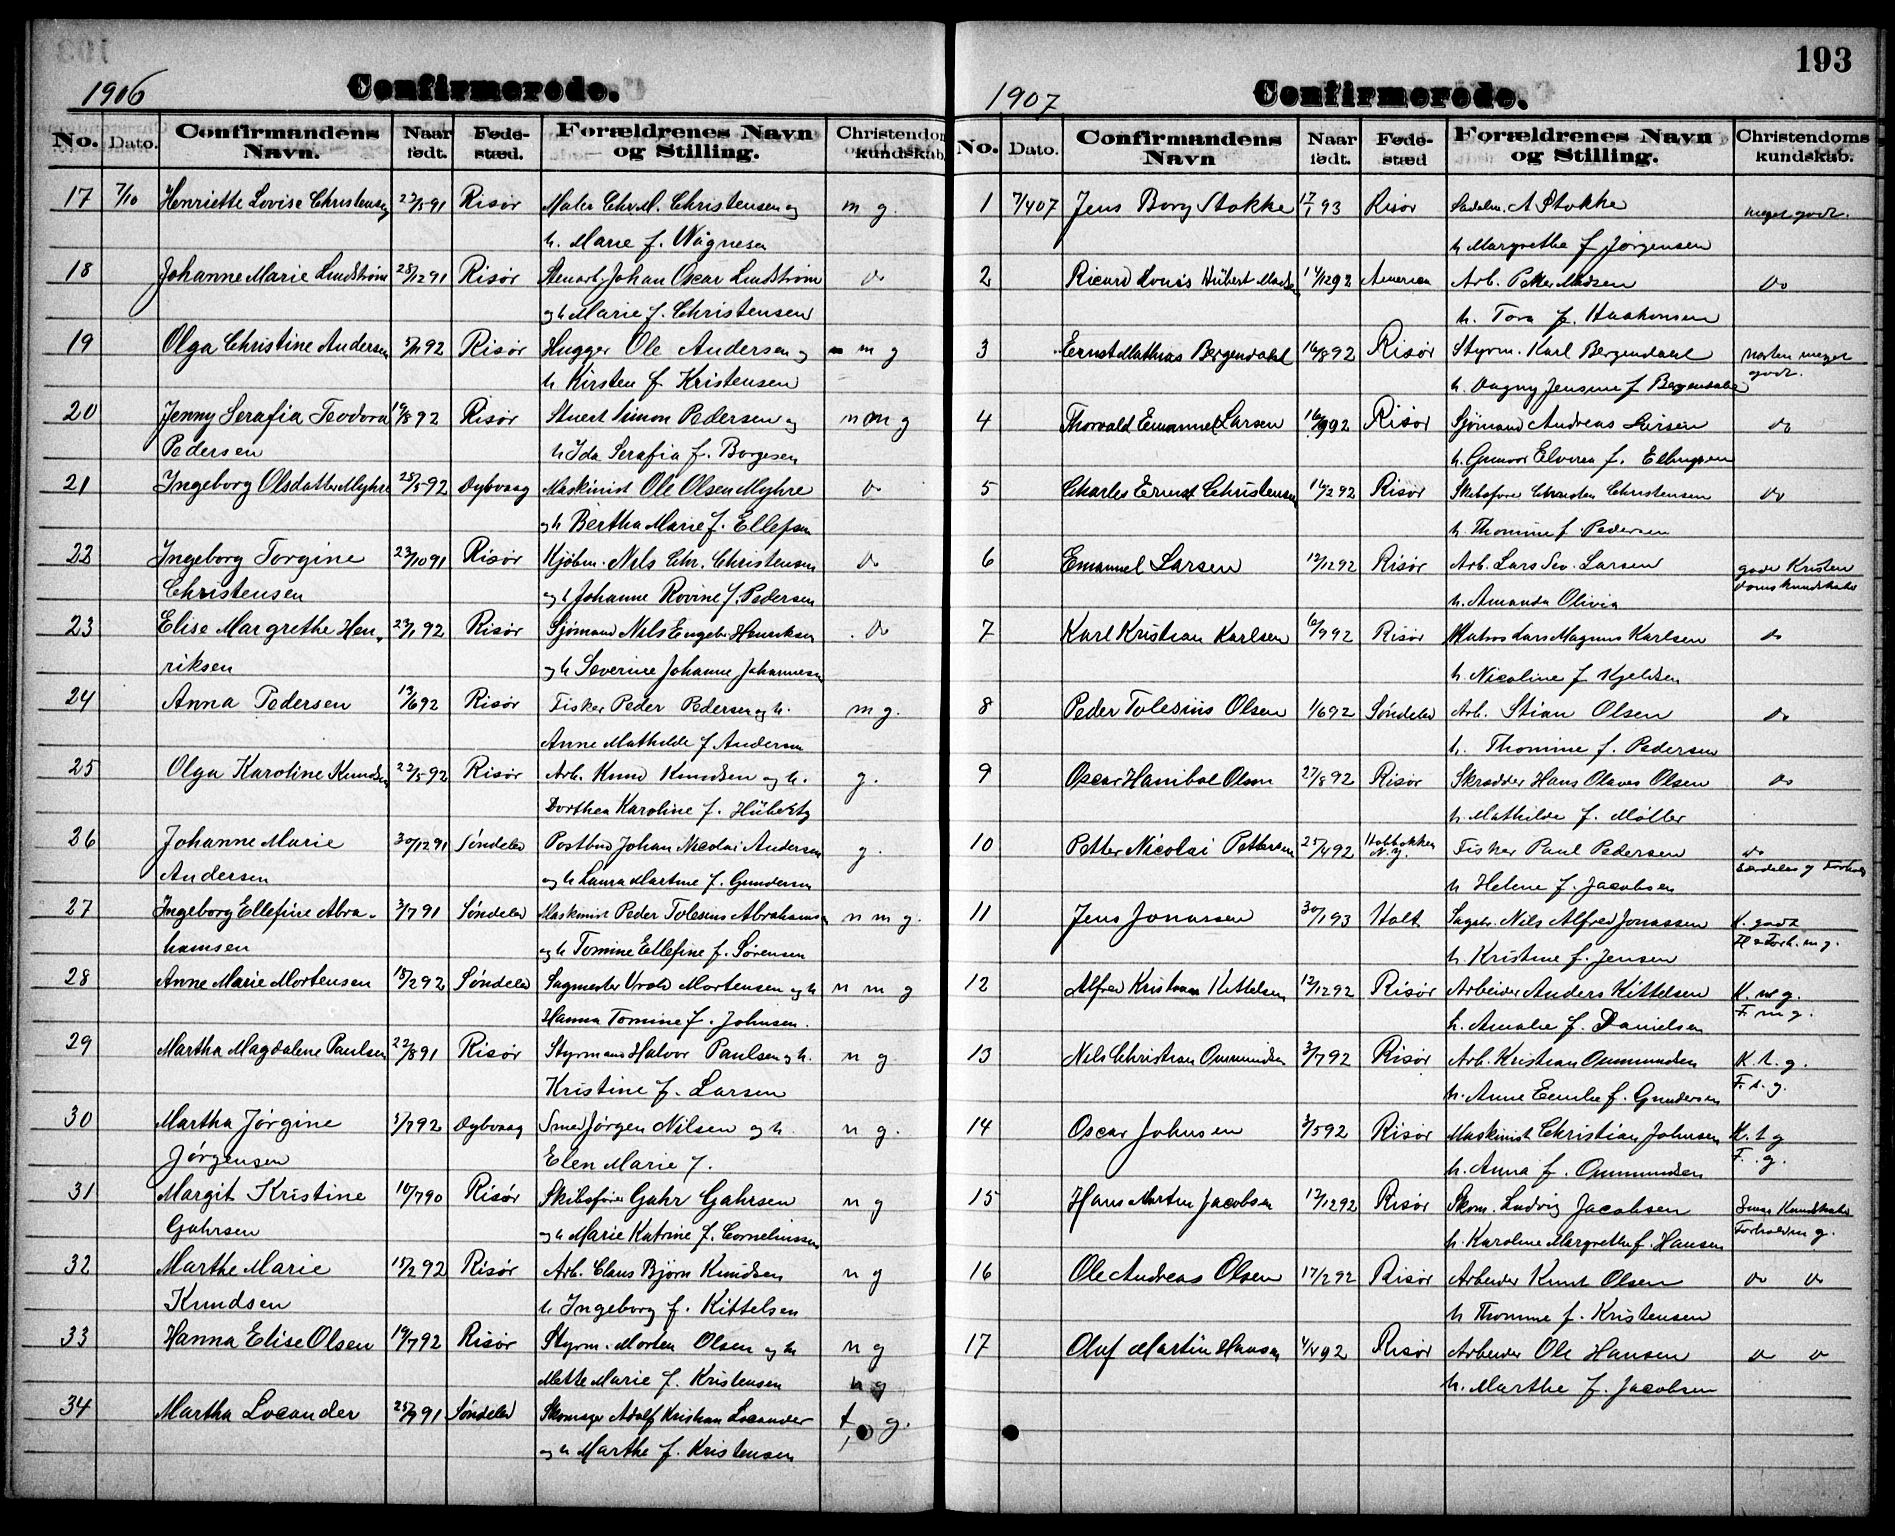 1906 Confirmerede.
No. Dato. Confirmandens Navn. Naar født. Føde-stæd. Forældrenes Navn og Stilling. Christendoms kundskab.
17 7/10 Henriette Lovise Christensen 22/5 91 Risør Maler Chr. M. Christensen og m g.
h. Marie f. Wagnesen
18 Johanne Marie Lindstrøm 28/12 91 Risør Stenarb. Johan Oscar Lindstrøm do
og h Marie f. Christensen
19 Olga Christine Andersen 92 Risør Hugger Ole Andersen og m g
h Kirsten f Kristensen
20 Jenny Serafia Teodora 8 92 Risør Stuert Simon Pedersen og n m g
Pedersen h Ida Serafia f. Borgesen
21 Ingeborg Olsdatter Myhre 25/5 92 Dybvaag Maskinist Ole Olsen Myhre do
og h Bertha Marie f. Ellefsen
22 Ingeborg Torgine 23/10 91 Risør Kjøbm. Nils Chr. Christensen do
Christensen og h Johanne Rovine f. Pedersen
23 Elise Margrethe Hen- 23/1 92 Risør Sjømand Nils Engebr Henriksen do
riksen og h Severine Johanne Johannesen
24 Anna Pedersen 13/6 92 Risør Fisker Peder Pedersen og h. m g.
Anne Mathilde f Andersen
25 Olga Karoline Knudsen 22/5 92 Risør Arb. Knud Knudsen og h. g.
Dorthea Karoline f. Hübertz
26 Johanne Marie 30/12 91 Søndeled Postbud Johan Nicolai Andersen g.
Andersen og h Laura Martine f. Gundersen
27 Ingeborg Ellefine Abra- 3/7 91 Søndeled Maskinist Peder Tolesius Abrahamsen n m g.
hamsen og h Tomine Ellefine f. Sørensen
28 Anne Marie Mortensen 18/2 92 Søndeled Sagmester Vrold Mortensen og h n m g
Hanna Tomine f. Johnsen.
29 Martha Magdalene Paulsen 22/8 91 Risør Styrmand Halvor Paulsen og h. n g.
Kristine f. Larsen
30 Martha Jørgine 7 92 Dybvaag Smed Jørgen Nilsen og h. n g.
Jørgensen Elen Marie f.
31 Margit Kristine 10/7 90 Risør Skibsfører Gahr Gahrsen n g
Gahrsen og h Marie Katrine f. Corneliussen
32 Marthe Marie 15/2 92 Risør Arb. Claus Bjørn Knudsen n g
Knudsen h Ingeborg f. Kittelsen
33 Hanna Elise Olsen 19/7 92 Risør Styrm. Morten Olsen og h n g
Mette Marie f. Kristensen n g
34 Martha Locander 25/9 91 Søndeled Skomager Adolf Kristian Locander t. g.
og h Marthe f. Kristensen
193
1907 Confirmerede.
No. Dato. Confirmandens Navn Naar født. Føde-stæd Forældrenes Navn og Stilling. Christendoms kundskab.
1 7/4 07 Jens Borg Stokke 17/1 93 Risør A Stokke meget godt.
h Margrethe f Jørgensen
2 Ricard Louis Hübert Madsen 14/12 92 America Arb. Peter Madsen do
h. Tora f. Haakonsen
3 Ernst Mathias Bergendahl 16/8 92 Risør Styrm. Karl Bergendahl næsten meget
godt.
h. Dagny Jensine f Bergendahl
4 Thorvald Emanuel Larsen 16/9 92 Risør Sjømand Andreas Larsen do
h. Gunvor Elvira f.
5 Charles Ernst Christensen 16/2 92 Risør Skibsfører Christen Christensen do
h. Thomine f Pedersen
6 Emanuel Larsen 12/12 92 Risør Arb. Lars Sev. Larsen god Kristen
domskundskab
h. Amanda Olivia
7 Karl Kristian Karlsen 6/9 92 Risør Matros Lars Magnus Karlsen do
h. Nicoline f Kjeldsen
8 Peder Tolesius Olsen 1/6 92 Søndeled Arb. Stian Olsen do
h. Thomine f. Pedersen
9 Oscar Hanibal Olsen 27/8 92 Risør Skrædder Hans Olaves Olsen do
h. Mathilde f. Møller
10 Petter Nicolai Pettersen 25/4 92 Hobbokken N.Y. Fisker Paul Pedersen do
særdeles g Forhold
h Helene f. Jacobsen
11 Jens Jonassen 30/1 93 Holt Sagbr. Nils Alfred Jonassen K. godt
Forh. m g.
h. Kristine f. Jensen
12 Alfred Kristian Kittelsen 12/12 92 Risør Arbeider Anders Kittelsen K. m g.
F. m g.
h. Amalie f. Danielsen
13 Nils Christian Ommundsen 3/7 92 Risør Arb. Kristian Ommundsen K. t. g.
F. t. g.
h. Anne Emilie f. Gundersen
14 Oscar Johnsen 3/5 92 Risør Maskinist Christian Johnsen K. t g
F. g.
h. Anna f. Ommundsen
15 Hans Martin Jacobsen 12/12 92 Risør Skom. Ludvig Jacobsen Kundskab
Forhold m g.
h. Karoline Margrethe f. Hansen
16 Ole Andreas Olsen 17/2 92 Risør Arbeider Knut Olsen do do
h Thomine f. Kristensen
17 Oluf Martin Hansen 4/4 92 Risør Arbeider Ole Hansen do do
h. Marthe f. Jacobsen